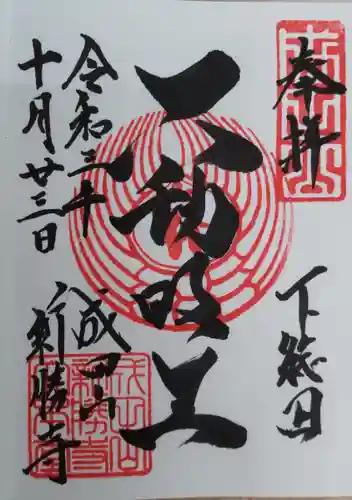 奉拝
下総国
不動明王
令和三年
十月廿三日
成田山
新勝寺